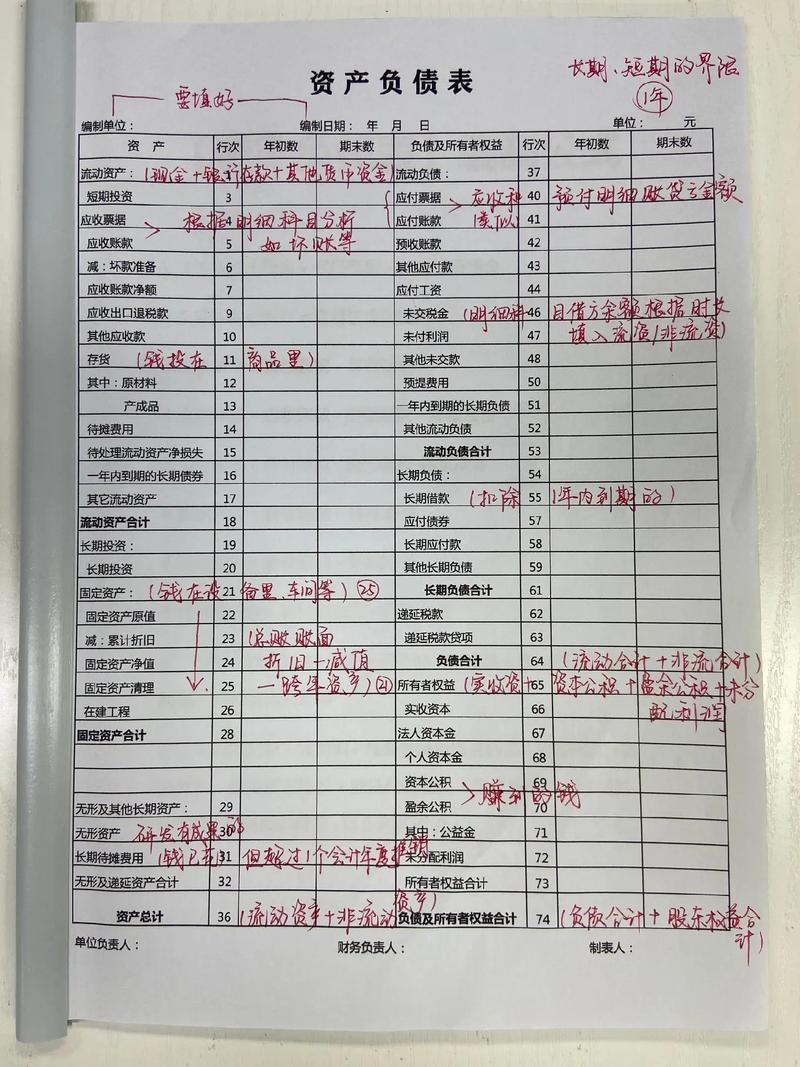 资产负债表
长期、短期的界限
1年
要填好
编制单位： 编制日期： 年 月 日 单位： 元
资 产 行次 年初数 期末数 负债及所有者权益 行次 年初数 期末数
流动资产： (现金+银行存款+其他货币资金) 流动负债： 37
短期投资 3 应付票据 40
应收票据 4 应付账款 41
根据明细科目分析
应收和
类似
预付明细账贷方金额
应收账款 5 如坏账等 预收账款 42
减：坏款准备 6 其他应付款 43
应收账款净额 7 应付工资 44
应收出口退税款 9 未交税金 46
(明细科目借方余额根据时长
填入流资/非流资)
其他应收款 10 未付利润 47
存货 (钱投在商品里) 11 其他未交款 48
其中：原材料 12 预提费用 50
产成品 13 一年内到期的长期负债 51
待摊费用 14 其他流动负债 52
待处理流动资产净损失 15 流动负债合计 53
一年内到期的长期债券 16 长期负债： 54
其它流动资产 17 长期借款 55 (扣除1年内到期的)
流动资产合计 18 应付债券 57
长期投资： 19 长期应付款 58
长期投资 20 其他长期负债 59
固定资产： 21 (钱在设备里、车间等) 25 长期负债合计 61
固定资产原值 22 递延税款 62
减：累计折旧 23 (总账账面 递延税款贷项 63
固定资产净值 24 折旧-减值 负债合计 64 (流动合计+非流合计)
固定资产清理 25 一跨年资产) 21 所有者权益 65 (实收资+资本公积+盈余公积+未分
配利润
在建工程 26 实收资本 66
固定资产合计 28 法人资本金 67
个人资本金 68
资本公积 69
赚到的钱
无形及其他长期资产： 29 盈余公积 70
无形资产 30 研发有成果的 其中：公益金 71
长期待摊费用 31 (钱已花 但超过1个会计年度摊销 未分配利润 72
无形及递延资产合计 32 所有者权益合计 73
资产总计 36 (流动资产+非流动资产) 负债及所有者权益合计 74 (负债合计+股东权益合
计)
单位负责人： 财务负责人： 制表人：